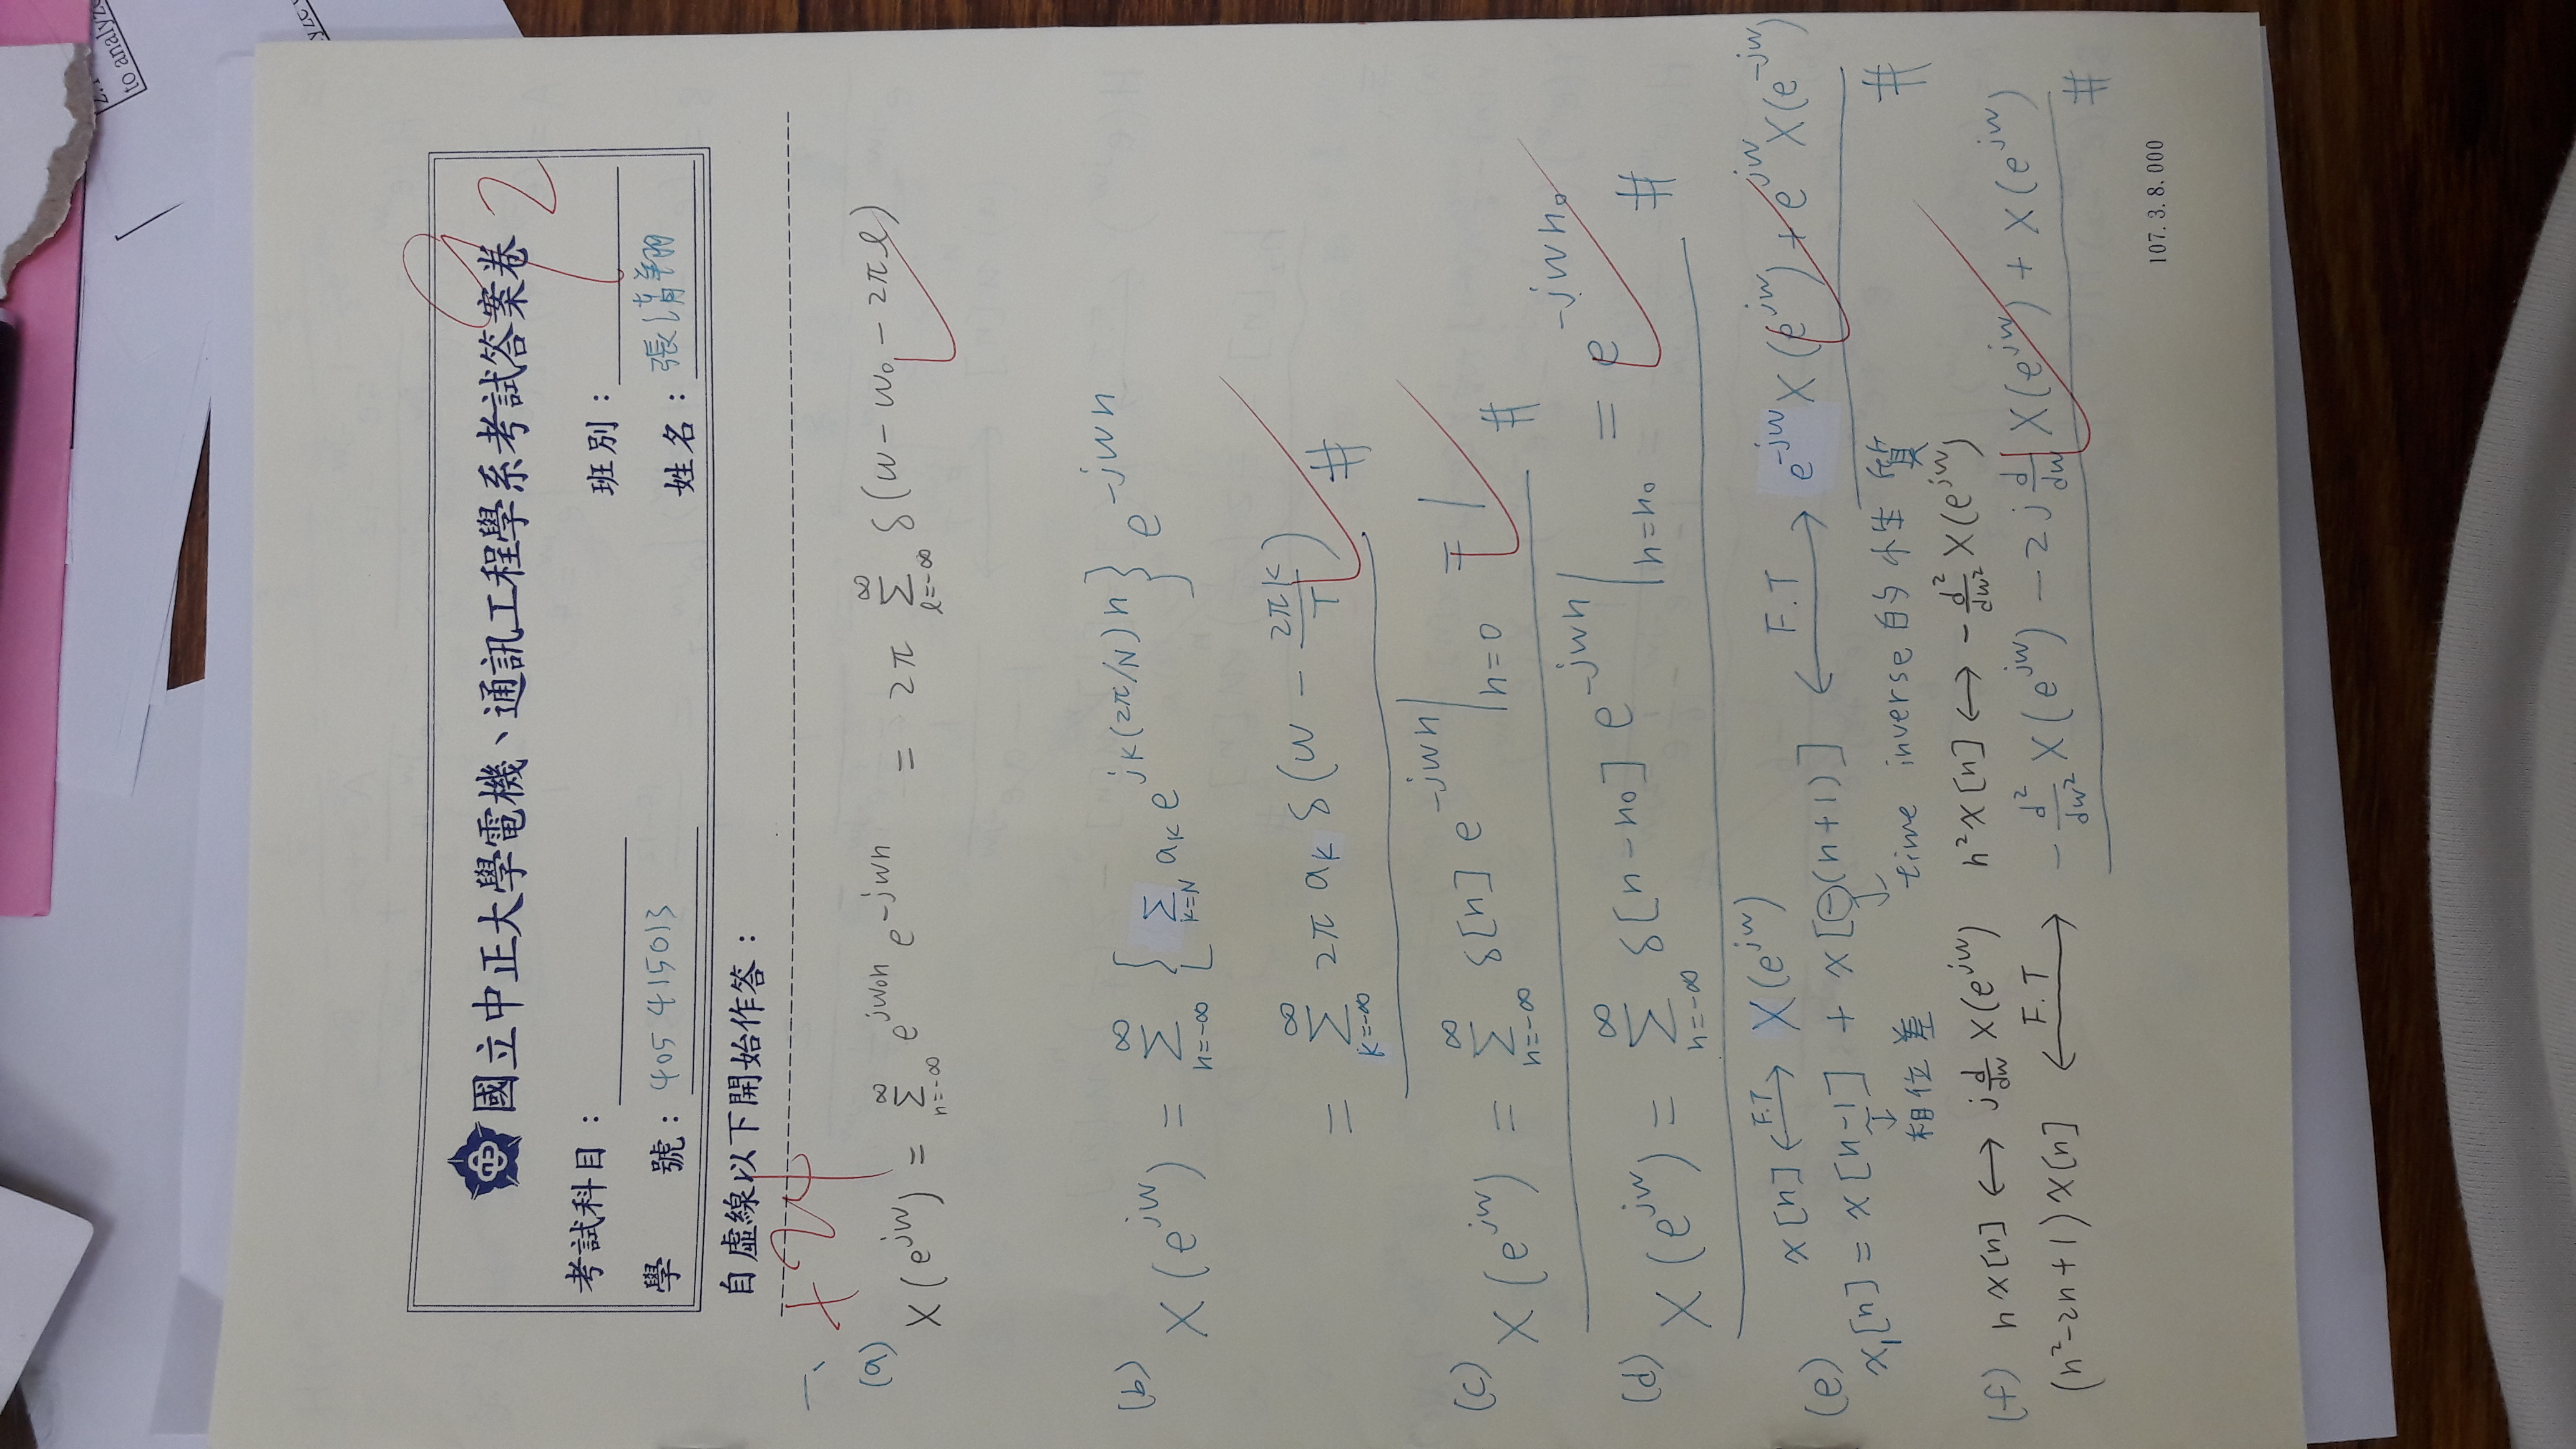 2. 
to analyze
yze
國立中正大學電機、通訊工程學系考試答案卷
92
考試科目：
班別：
學 號：405415013
姓名：張清翔
自虛線以下開始作答：
一、
+24
(a)
X(e^{jw}) = Σ_{n=-∞}^{∞} e^{jw₀n} e^{-jwn} = 2π Σ_{ℓ=-∞}^{∞} δ(w - w₀ - 2πℓ)
(b) X(e^{jw}) = Σ_{n=-∞}^{∞} { Σ_{k=N} a_k e^{jk(2π/N)n} } e^{-jwn}
= Σ_{k=-∞}^{∞} 2π a_k δ(w - 2πk/T) #
(c) X(e^{jw}) = Σ_{n=-∞}^{∞} δ[n] e^{-jwn} |_{n=0} = 1 #
(d) X(e^{jw}) = Σ_{n=-∞}^{∞} δ[n-n₀] e^{-jwn} |_{n=n₀} = e^{-jwn₀} #
x[n] ↔ F.T X(e^{jw})
(e) x₁[n] = x[n-1] + x[-(n+1)] ↔ F.T e^{-jw} X(e^{jw}) + e^{jw} X(e^{-jw}) #
相位差 time inverse 的性質
(f) nx[n] ↔ j d/dw X(e^{jw}) n²x[n] ↔ - d²/dw² X(e^{jw})
(n²-2n+1)x[n] ↔ F.T - d²/dw² X(e^{jw}) - 2j d/dw X(e^{jw}) + X(e^{jw}) #
107.3.8.000